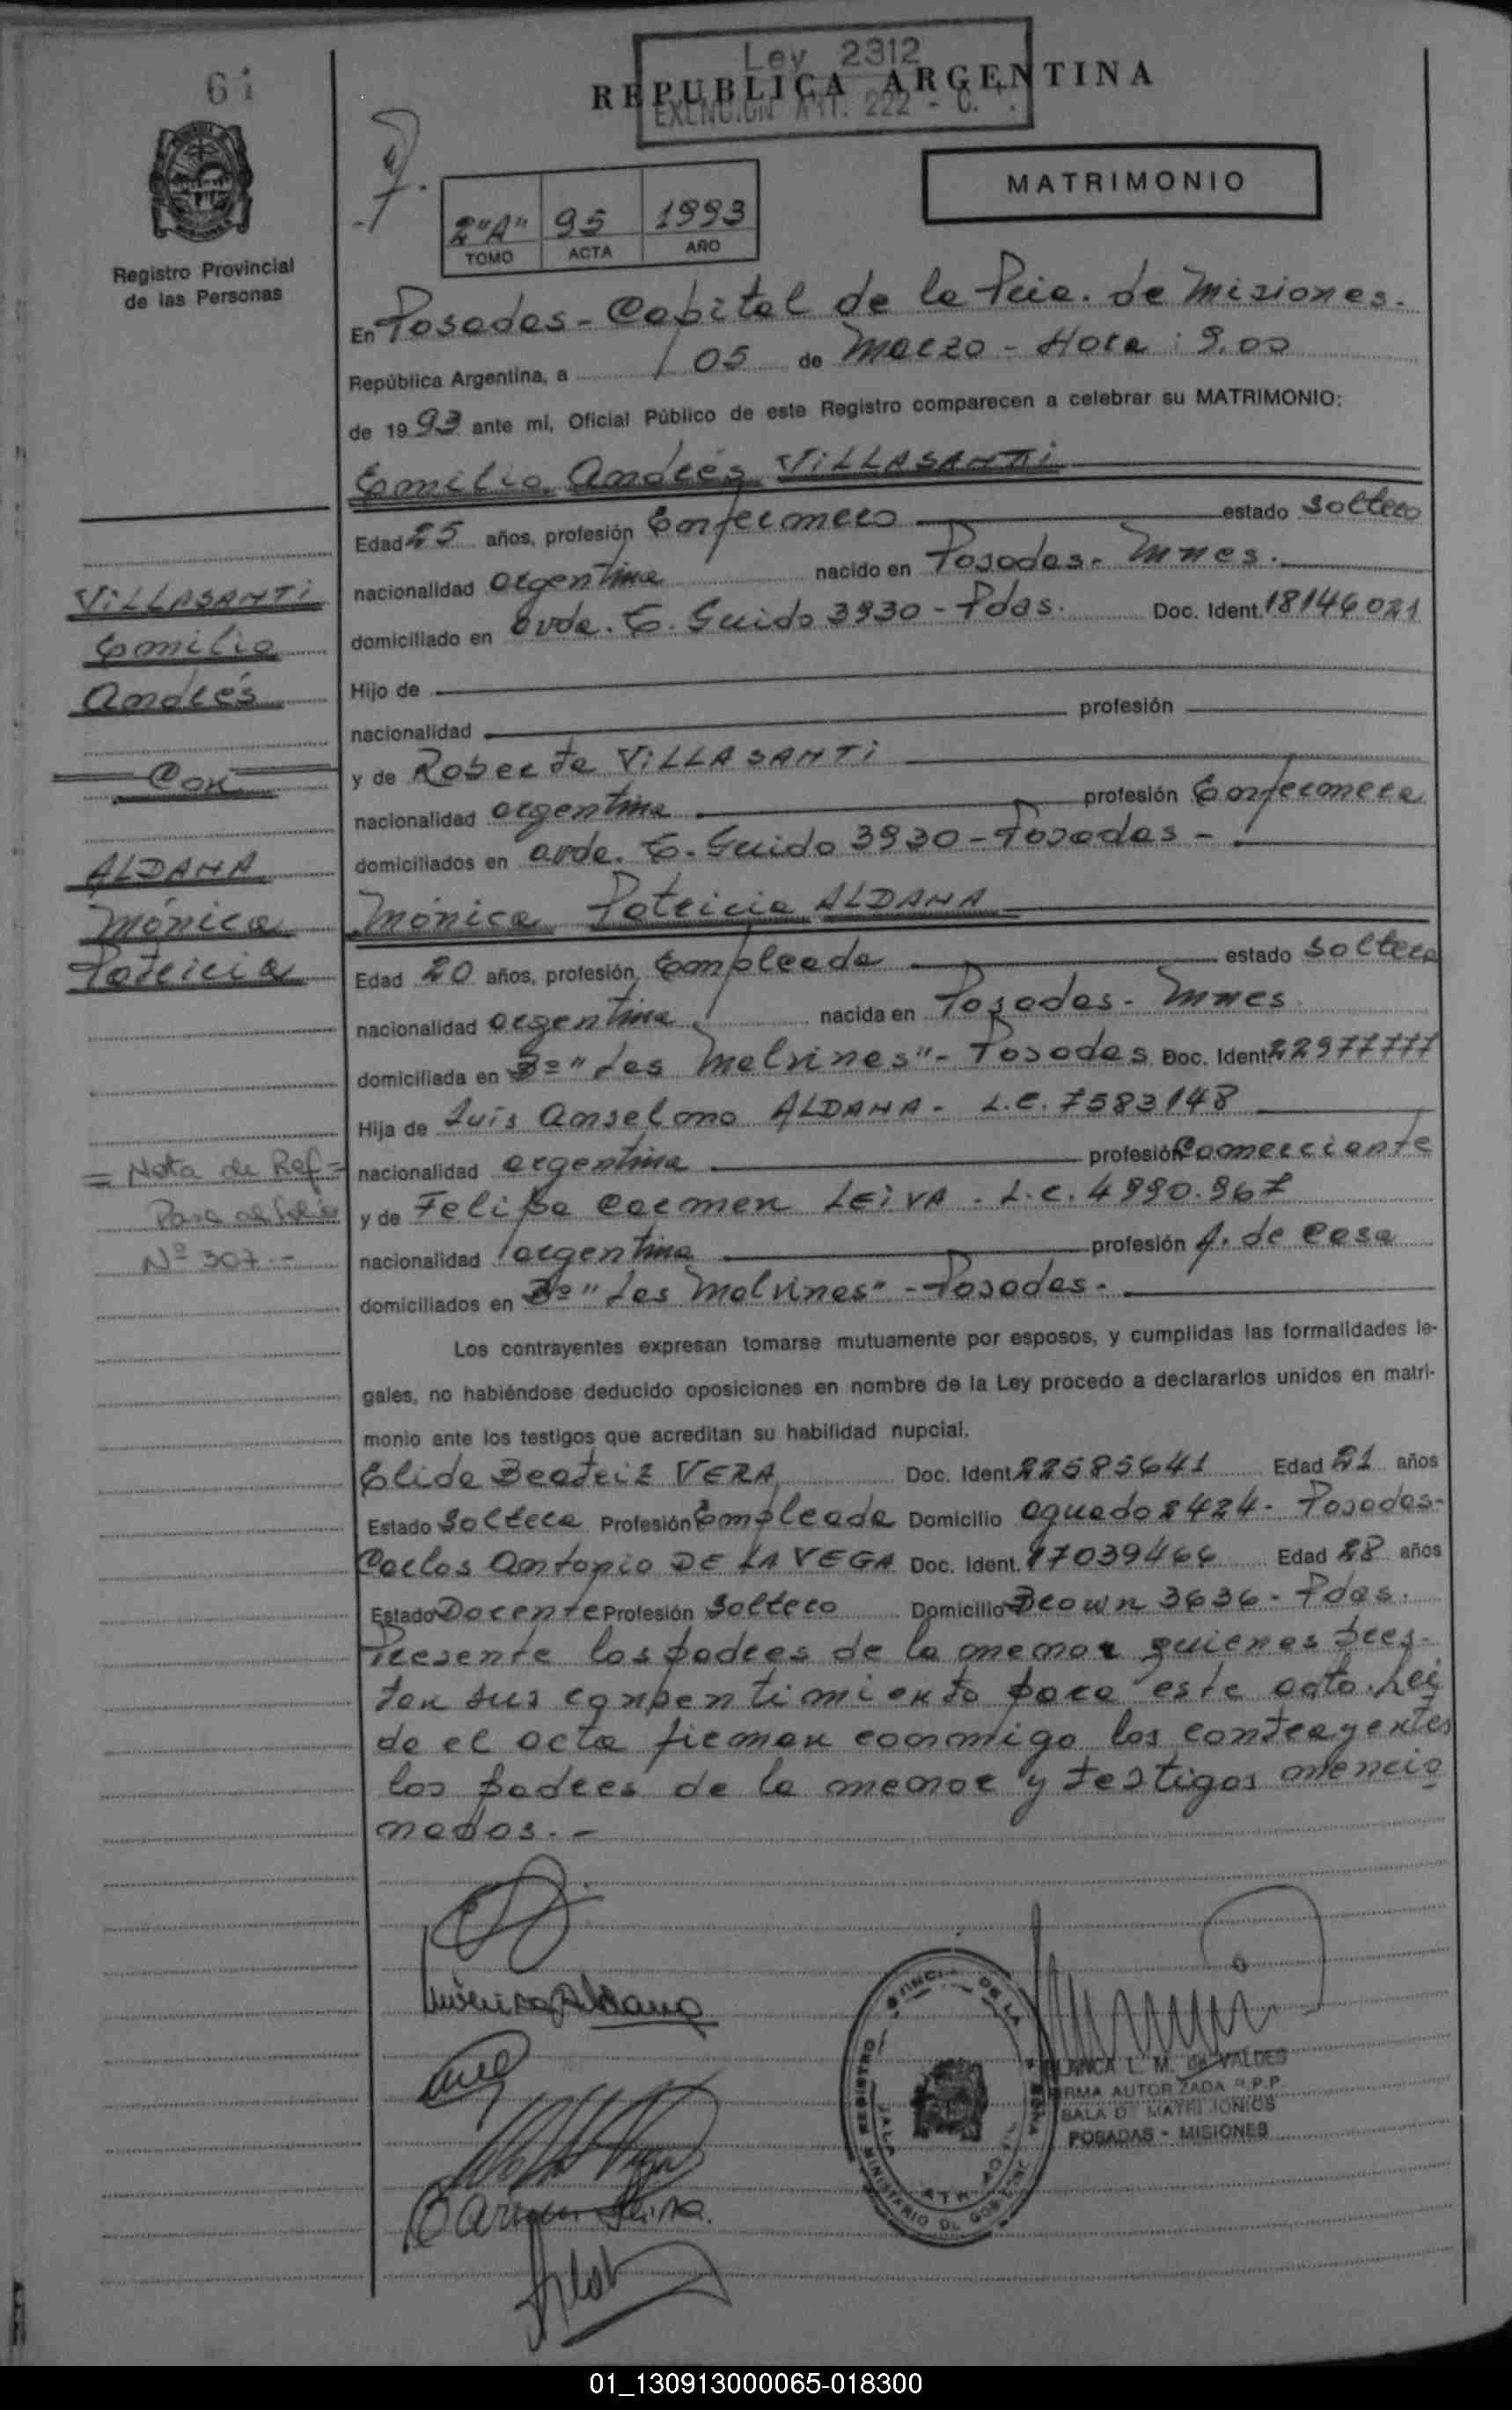 61
Ley 2312
REPUBLICA ARGENTINA
EXENCION ART. 222 - C.
MATRIMONIO
2"A" 95 1993
TOMO ACTA AÑO
Registro Provincial
de las Personas
En Posadas - Capital de la Pcia. de Misiones.
República Argentina, a 05 de Marzo - Hora: 9.00
de 1993 ante mí, Oficial Público de este Registro comparecen a celebrar su MATRIMONIO:
Emilio Andrés VILLASANTI
Edad 25 años, profesión Enfermero estado soltero
nacionalidad argentina nacido en Posadas - Mnes.
domiciliado en avda. T. Guido 3930 - Pdas. Doc. Ident. 18146021
Hijo de
nacionalidad profesión
y de Roberta VILLASANTI
nacionalidad argentina profesión Enfermera
domiciliados en avda. T. Guido 3930 - Posadas -
Mónica Patricia ALDANA
Edad 20 años, profesión Empleada estado soltera
nacionalidad argentina nacida en Posadas - Mnes
domiciliada en Bº "Las Malvinas" - Posadas Doc. Ident. 22977777
Hija de Luis Anselmo ALDANA - L.E. 7583148
nacionalidad argentina profesión Comerciante
y de Felipa Carmen LEIVA - L.C. 4990.967
nacionalidad argentina profesión A. de casa
domiciliados en Bº "Las Malvinas" - Posadas -
VILLASANTI
Emilio
Andrés
Con
ALDANA
Mónica
Patricia
= Nota de Ref =
Pasa al folio
Nº 307.-
Los contrayentes expresan tomarse mutuamente por esposos, y cumplidas las formalidades le-
gales, no habiéndose deducido oposiciones en nombre de la Ley procedo a declararlos unidos en matri-
monio ante los testigos que acreditan su habilidad nupcial.
Elida Beatriz VERA Doc. Ident. 22585641 Edad 21 años
Estado Soltera Profesión Empleada Domicilio aguado 2424 - Posadas -
Carlos Antonio DE LA VEGA Doc. Ident. 17039466 Edad 28 años
Estado Docente Profesión Soltero Domicilio Brown 3636 - Pdas.
Presente los padres de la menor quienes pres-
tan sus consentimiento para este acto. Lei
da el acta firman conmigo los contrayentes
los padres de la menor y testigos mencio
nados.-
Mónica Aldana
Carmen Leiva.
BLANCA L. M. DE VALDES
FIRMA AUTORIZADA R.P.P.
SALA DE MATRIMONIOS
POSADAS - MISIONES
01_130913000065-018300